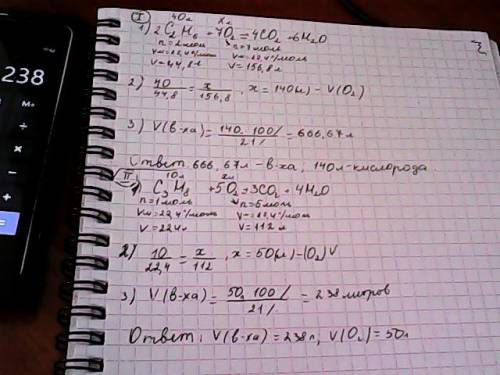 238
I 40л xл
1) 2C₂H₆ + 7O₂ = 4CO₂ + 6H₂O
n = 2 моль n = 7 моль
Vм = 22,4 л/моль V = 22,4 л/моль
V = 44,8 л V = 156,8 л
2) 40/44,8 = x/156,8, x = 140(л) - V(O₂)
3) V(в-ха) = 140 · 100%/21% = 666,67 л
Ответ 666,67 л - в-ха, 140л - кислорода
II 10л xл
1) C₃H₈ + 5O₂ = 3CO₂ + 4H₂O
n = 1 моль n = 5 моль
Vм = 22,4 л/моль V = 22,4 л/моль
V = 22,4 л V = 112 л
2) 10/22,4 = x/112, x = 50(л) - (O₂)V
3) V(в-ха) = 50 · 100%/21% = 238 литров
Ответ: V(в-ха) = 238 л, V(O₂) = 50л